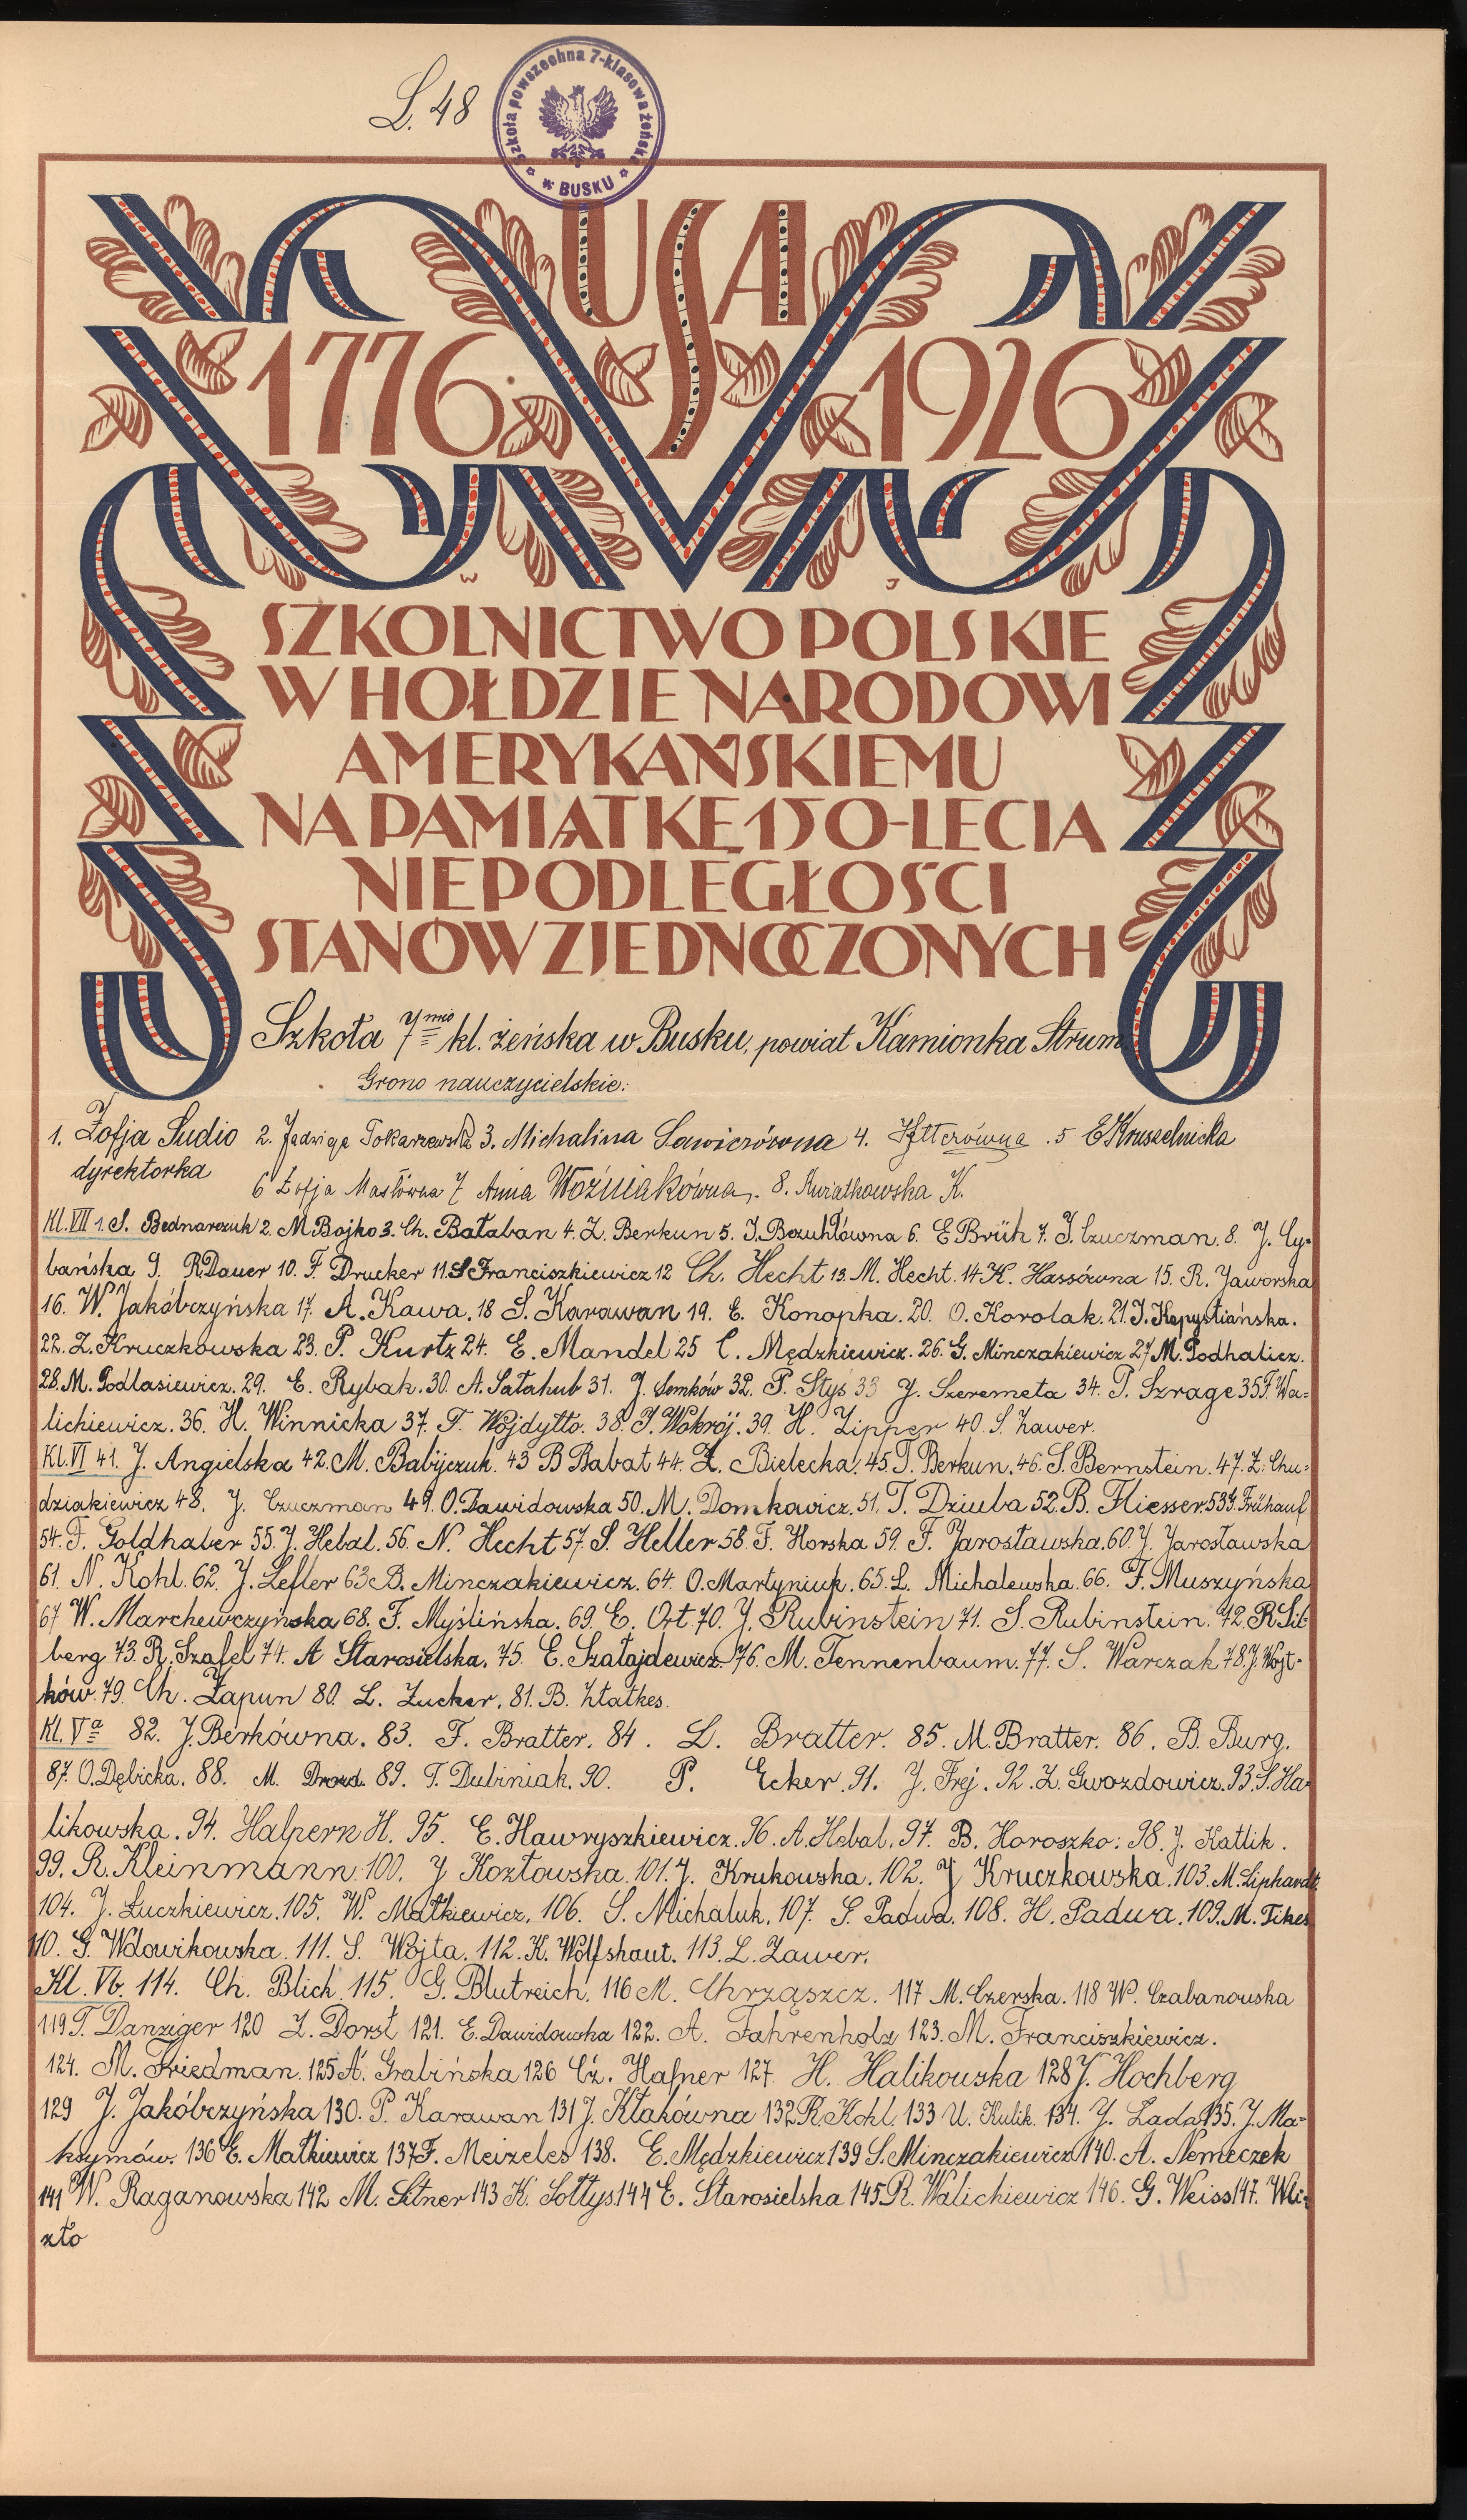 L. 48
Szkoła powszechna 7-klasowa żeńska
w BUSKU
USA
1776 1926
W J
SZKOLNICTWO POLSKIE
W HOŁDZIE NARODOWI
AMERYKAŃSKIEMU
NA PAMIĄTKĘ 150-LECIA
NIEPODLEGŁOŚCI
STANÓW ZJEDNOCZONYCH
Szkoła 7mio kl. żeńska w Busku, powiat Kamionka Strum.
Grono nauczycielskie:
1. Zofja Sudio 2. Jadwiga Tokarzewska 3. Michalina Sawiczówna 4. 5 E Kruszelnicka
dyrektorka
6 Zofja Masłówna 7 Anna Woźniakówna. 8. Kwiatkowska K.
Kl. VII 1. S. Bednarczuk 2. M Bojko 3. Ch. Bałaban 4. Z. Berkun 5. J. Bezuhłówna 6. E Brüh 7. J. Czuczman. 8. J. Cy-
bańska 9. R Dauer 10. F. Drucker 11. S Franciszkiewicz 12 Ch. Hecht 13. M. Hecht. 14 K. Hassówna 15. R. Jaworska
16. W. Jakóbczyńska 17. A. Kawa. 18 S. Karawan 19. E. Konopka. 20. O. Korolak. 21. J. Kopystiańska.
22. Z. Kruczkowska 23. P. Kurtz 24. E. Mandel 25 C. Mędzkiewicz. 26. G. Minczakiewicz 27 M. Podhalicz.
28. M. Podlasiewicz. 29. E. Rybak. 30. A. Sałahub 31. J. Semków 32. P. Styś 33 J. Szeremeta 34. T. Szrage 35 F. Wa-
lichiewicz. 36. H. Winnicka 37. F. Wojdyłło. 38. J. Wokrój. 39. H. Zipper 40. S. Zawer.
Kl. VI 41. J. Angielska 42. M. Babijczuk. 43 B Babat 44. Z. Bielecka. 45 T. Berkun. 46. S. Bernstein. 47. Z. Chu-
dziakiewicz 48. J. Czuczman 49. O. Dawidowska 50. M. Domkowicz. 51. T. Dziuba 52. B. Fliesser. 53 Frühauf
54. F. Goldhaber 55. J. Hebal. 56. N. Hecht 57. S. Heller 58. F. Horska 59. F. Jarosławska. 60 J. Jarosławska
61. N. Kohl. 62. J. Lefler 63 B. Minczakiewicz. 64. O. Martyniuk. 65. L. Michalewska. 66. F. Muszyńska
67 W. Marchewczyńska 68. F. Myślińska. 69. E. Ort 70. J. Rubinstein 71. S. Rubinstein. 72. R Sil-
berg 73. R. Szafel 74. A Starosielska. 75. E. Szałajdewicz. 76. M. Tennenbaum. 77. S. Warczak 78. J. Wojt-
ków. 79. Ch. Zapun 80. L. Zucker. 81. B. Złatkes.
Kl. Va 82. J. Berkówna. 83. F. Bratter. 84. L. Bratter. 85. M. Bratter. 86. B. Burg.
87. O. Dębicka. 88. M. Drozd. 89. T. Dubiniak. 90. P. Ecker. 91. J. Frej. 92. Z. Gwozdowicz. 93. S. Ha-
likowska. 94. Halpern H. 95. E. Hawryszkiewicz. 96. A. Hebal. 97. B. Horoszko. 98. J. Katlik.
99. R. Kleinmann. 100. J Kozłowska. 101. J. Krukowska. 102. J Kruczkowska. 103. M. Liphardt.
104. J. Łuczkiewicz. 105. W. Małkiewicz. 106. S. Michaluk. 107. S. Padwa. 108. H. Padwa. 109. M. Tikes
110. G. Wdowikowska. 111. S. Wojta. 112. K. Wolfshaut. 113. L. Zawer.
Kl. Vb. 114. Ch. Blich 115. G. Blutreich. 116 M. Chrząszcz. 117 M. Czerska. 118 W. Czabanowska
119 T. Danziger 120 Z. Dorst 121. E. Dawidowska 122. A. Fahrenholz 123. M. Franciszkiewicz.
124. M. Friedman. 125 A. Grabińska 126 Cz. Hafner 127. H. Halikowska 128 J. Hochberg
129 J. Jakóbczyńska 130. P. Karawan 131 J. Kłakówna 132 R. Kohl. 133 U. Kulik. 134. J. Łada 135. J. Ma-
ksymów. 136 E. Małkiewicz 137 F. Meizeles 138. E. Mędzkiewicz 139 S. Minczakiewicz 140. A. Nemeczek
141 W. Raganowska 142 M. Sitner 143 K. Sołtys. 144 E. Starosielska 145 R. Walichiewicz 146. G. Weiss 147. W
zło